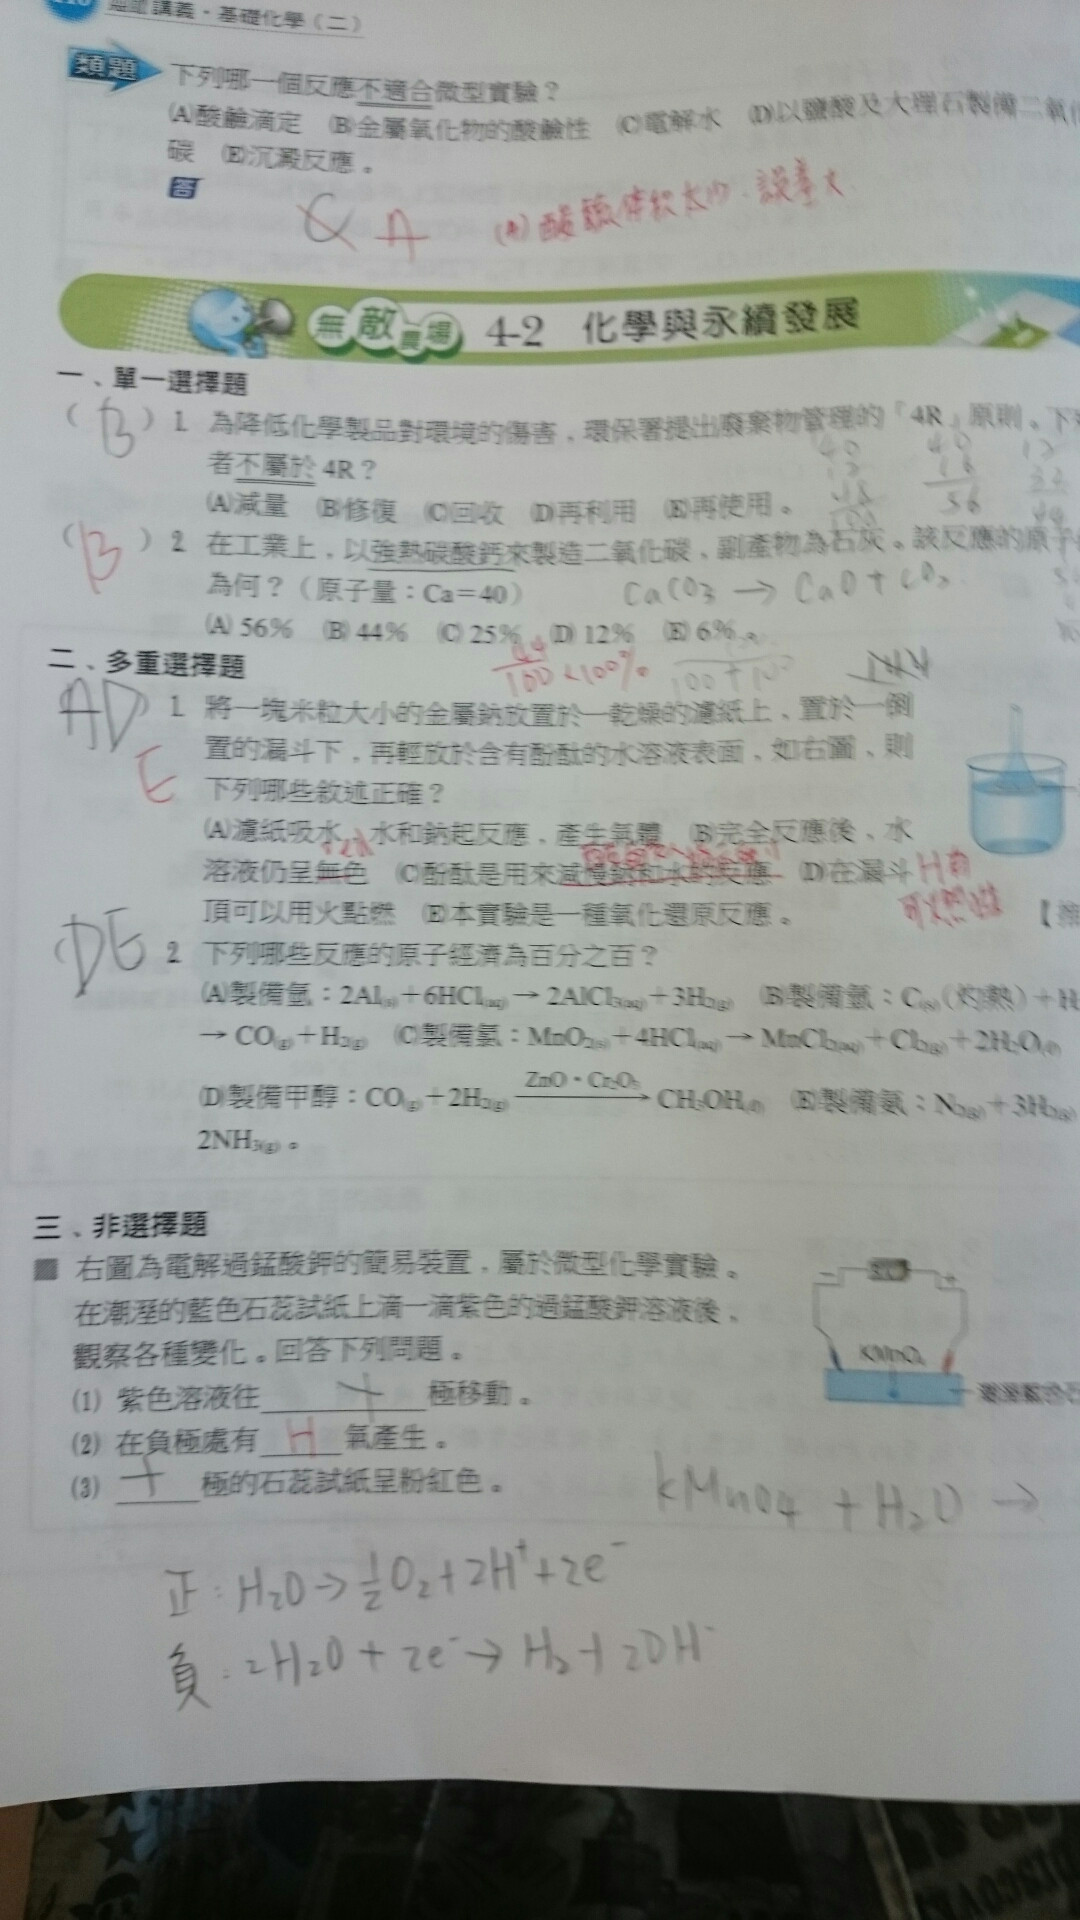 講義・基礎化學（二）
類題 下列哪一個反應不適合微型實驗？
(A)酸鹼滴定 (B)金屬氧化物的酸鹼性 (C)電解水 (D)以鹽酸及大理石製備二氧化
碳 (E)沉澱反應。
答
A (A)酸鹼 誤差大
無敵 4-2 化學與永續發展
一、單一選擇題
（B）1 為降低化學製品對環境的傷害，環保署提出廢棄物管理的「4R」原則。下
者不屬於 4R？
(A)減量 (B)修復 (C)回收 (D)再利用 (E)再使用。
56
（B）2 在工業上，以強熱碳酸鈣來製造二氧化碳，副產物為石灰。該反應的原子
為何？（原子量：Ca＝40） CaCO3 → CaO + CO2
(A) 56% (B) 44% (C) 25% (D) 12% (E) 6%
44/100 ×100%
二、多重選擇題
AD E 1 將一塊米粒大小的金屬鈉放置於一乾燥的濾紙上，置於一倒
置的漏斗下，再輕放於含有酚酞的水溶液表面，如右圖，則
下列哪些敘述正確？
(A)濾紙吸水，水和鈉起反應，產生氣體 (B)完全反應後，水
溶液仍呈無色 (C)酚酞是用來減慢鈉和水的反應 (D)在漏斗
頂可以用火點燃 (E)本實驗是一種氧化還原反應。
可燃性
DE 2 下列哪些反應的原子經濟為百分之百？
(A)製備氫：2Al(s)＋6HCl(aq)→2AlCl3(aq)＋3H2(g) (B)製備氫：C(s)(灼熱)＋H
→CO(g)＋H2(g) (C)製備氯：MnO2(s)＋4HCl(aq)→MnCl2(aq)＋Cl2(g)＋2H2O(l)
(D)製備甲醇：CO(g)＋2H2(g) ZnO・Cr2O3→ CH3OH(l) (E)製備氨：N2(g)＋3H2(g)
2NH3(g)。
三、非選擇題
右圖為電解過錳酸鉀的簡易裝置，屬於微型化學實驗。
在潮溼的藍色石蕊試紙上滴一滴紫色的過錳酸鉀溶液後，
觀察各種變化。回答下列問題。
− +
KMnO4
(1) 紫色溶液往 + 極移動。
(2) 在負極處有 H 氣產生。
(3) + 極的石蕊試紙呈粉紅色。
KMnO4 + H2O →
正：H2O → ½O2 + 2H+ + 2e-
負：2H2O + 2e- → H2 + 2OH-